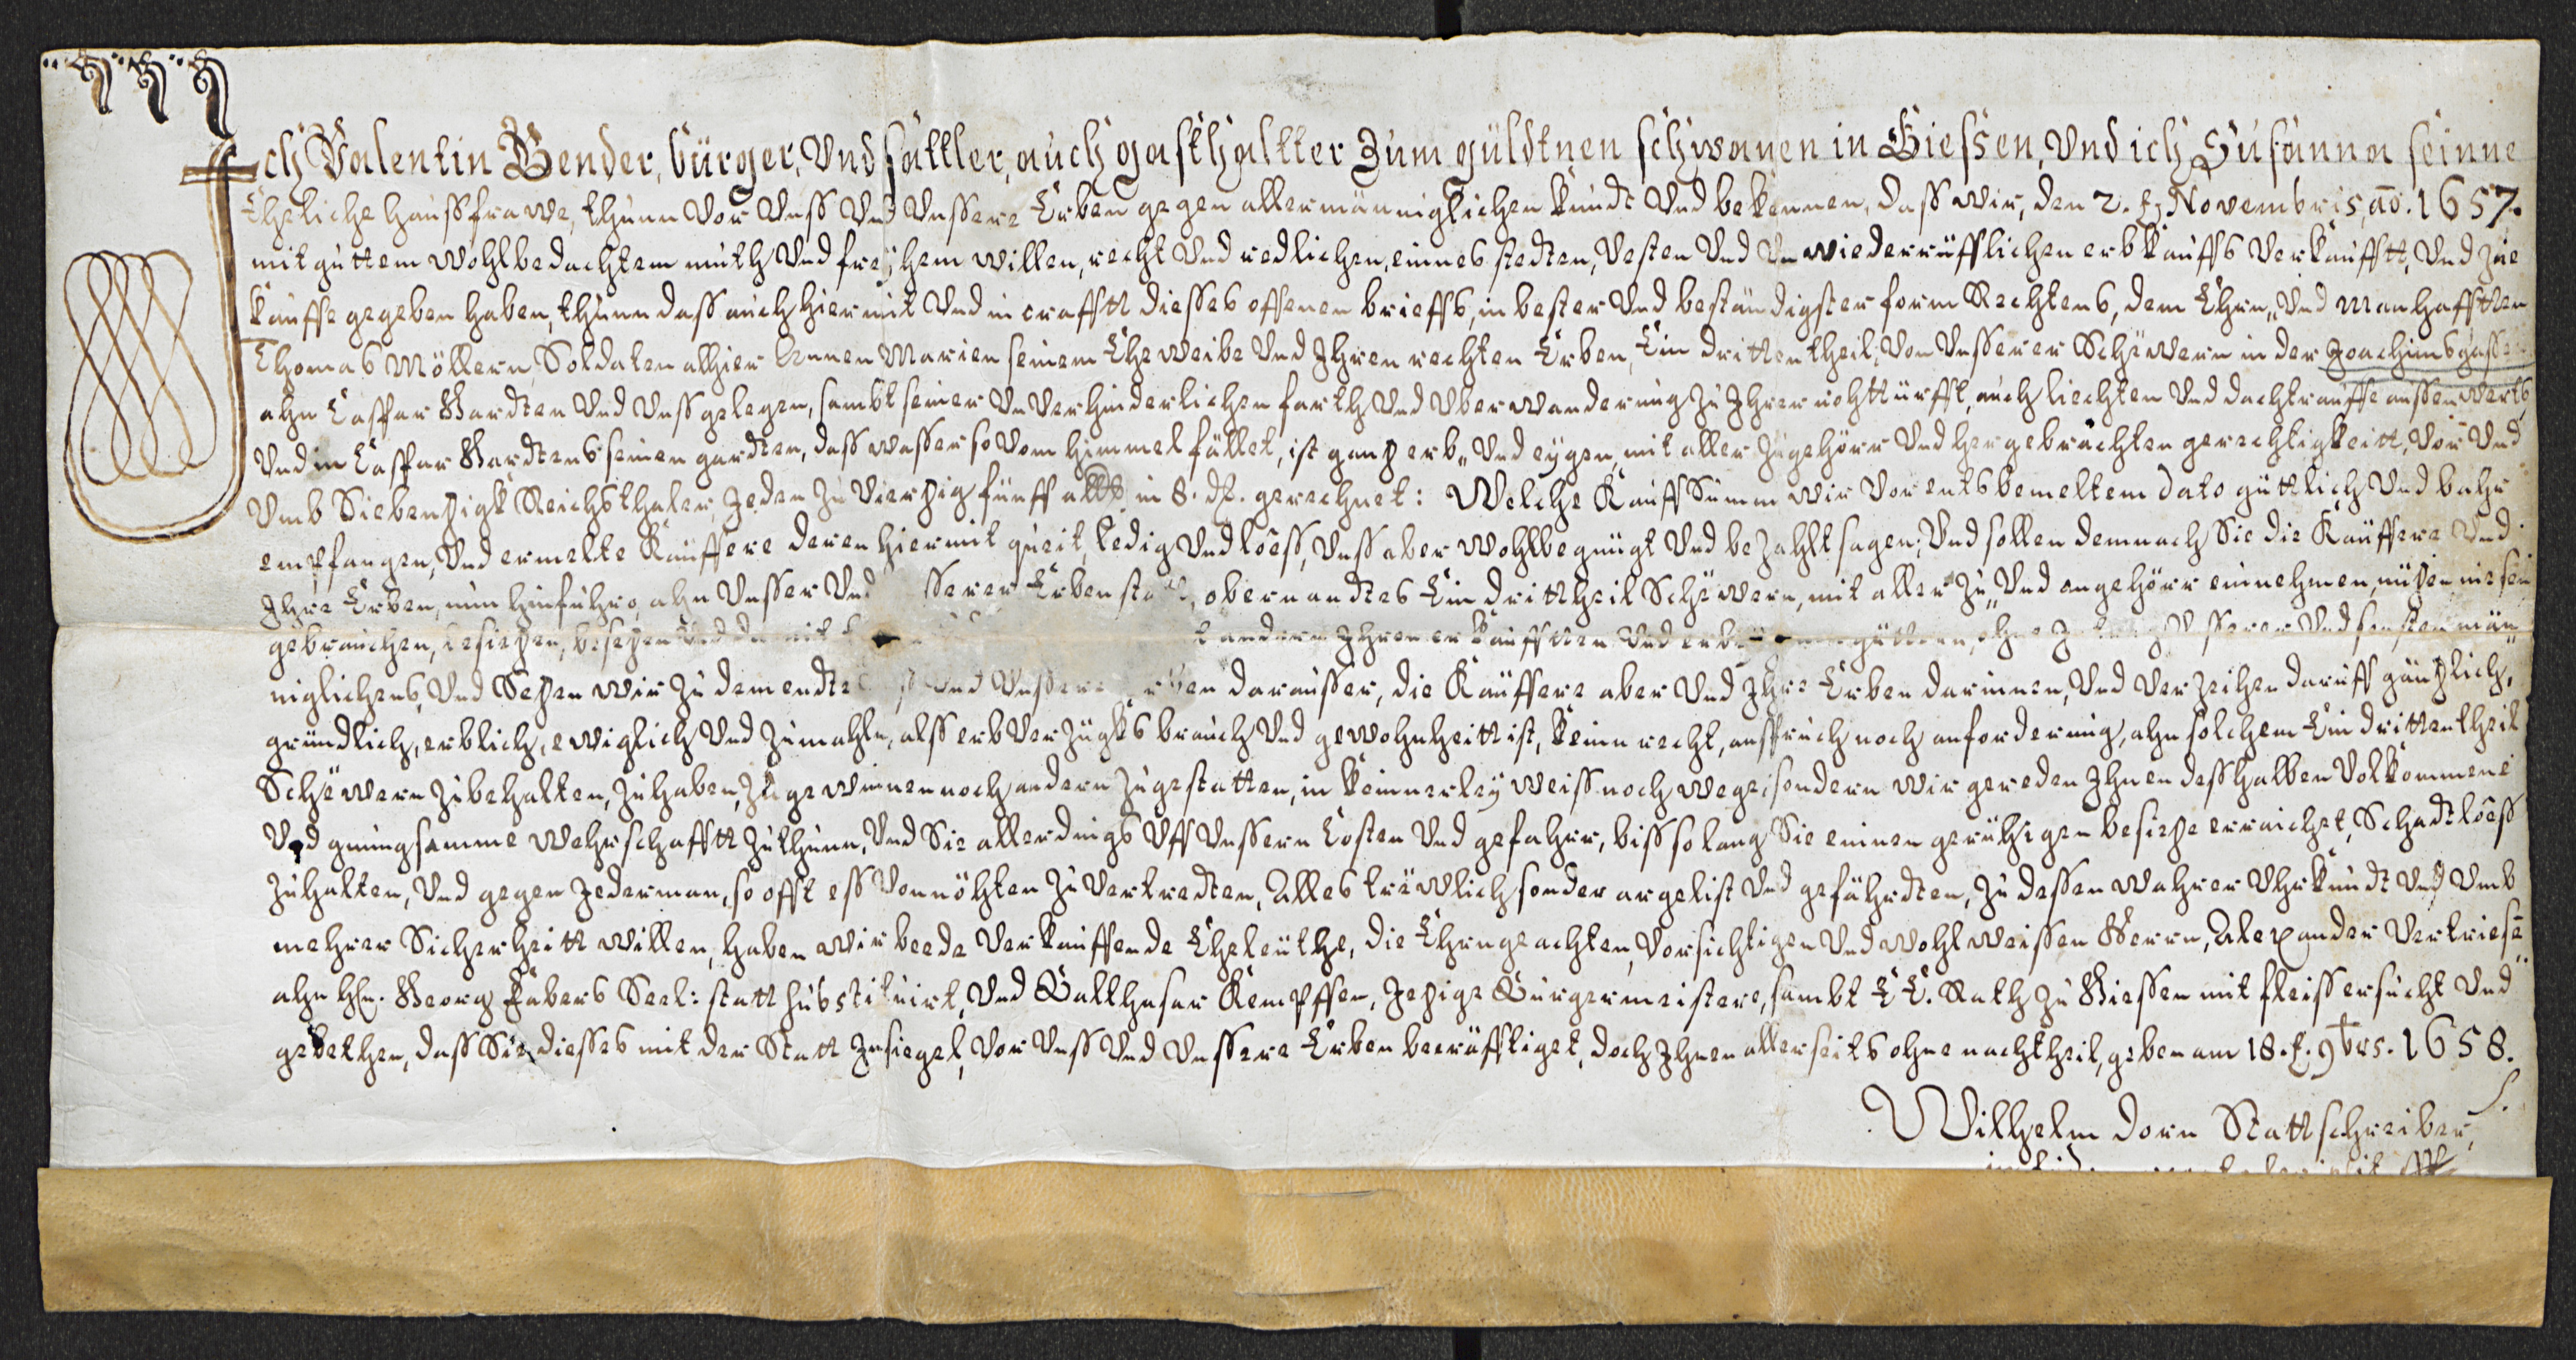 Ich Valentin Bender, bürger, Vnd sattler, auch gasthaltter Zum güldtnen schwanen in Giessen, Vnd ich Susanna seinne
Eheliche haussfrawe, thunn Vor Vnss Vnd Vnssere Erben gegen allermänniglichen kundt Vnd bekennen, dass wir, den 2. t. Novembris, ao. 1657.
mit guttem wohlbedachtem muth Vnd freyhem willen, recht Vnd redlichen, eines stedten, Vesten Vnd Vnwiederrufflichen erbkauffs Verkaufftt, Vnd zue
kauffe gegeben haben, thunn dass auch hiermit Vnd in crafftt diesses offenen brieffs, in bester Vnd beständigster form Rechtens, dem Ehrn„ Vnd Manhafftten
Thomas Möllern, Soldaten alhier Annen Marien seinem Eheweibe Vnd Ihren rechten Erben, Ein drittentheil, Von Vnsserer Schewern in der Joachimsgasse
ahn Caspar Hardten Vnd Vnss gelegen, sambt seiner VnVerhinderlichen farth Vnd Vberwanderung zu Ihrer nohtturfft, auch liechten Vnd dachtrauffe aussenwerts,
Vnd in Caspar Hardtens seinen gardten, dass wasser so Vom himmel fället, ist gantz erb„ Vnd eygen, mit aller Zugehörr Vnd hergebrachten gerechtigkeitt, Vor Vnd
Vmb Siebentzigk Reichsthaler, Jeden zu Viertzig fünff albs. in 8. d. gerechnet: Welche Kauff Summ wir Vorentsbemeltem dato güttlich Vnd bahr
empfangen, Vnd ermelte Käuffere deren hiermit queit, ledig Vnd loess, Vnss aber wohlbegnügt Vnd bezahlt sagen, Vnd sollen demnach Sie die Käuffere Vnd
Ihre Erben, nun hinführo, ahn Vnsser Vnd sserer Erben statt, obernandtes Ein drittheil Schewern, mit aller zu„ Vnd angehörr einnehmen, nützen niesen
gebrauchen, besitzen, besetzen Vnd damit t andern Ihren erkaufften Vnd güttern, ohne Vnsserer Vnd sonsten män„
niglichens, Vnd Setzen wir zu dem endte Vnd Vnssere Erben darausser, die Käuffere aber Vnd Ihre Erben darinnen, Vnd Verzeihen daruff gäntzlich,
gründlich, erblich, ewiglich Vnd zumahln, alss erbVerzugks brauch Vnd gewohnheitt ist, keinn recht, anspruch noch anforderung, ahn solchem Ein drittentheil
Schewern zubehalten, zuhaben, zugewinnen noch andern zugestatten, in keinnerley weiss noch wege, sondern wir gereden Ihnen desshalben Volkommene
Vnd gnungsamme wehrschafftt zuthunn, Vnd Sie allerdings Vff Vnssern Costen Vnd gefahrr, biss so lang Sie einnen geruhigen besitze erreichet, Schadtloess
zuhalten, Vnd gegen Jederman, so offt ess Vonnöhten zu Vertredten, Alles trewlich sonder argelist Vnd gefährdten, Zu dessen wahrer Vhrkundt Vnd Vmb
mehrer Sicherheitt willen, haben wir beede Verkauffende Eheleuthe, die Ehrngeachten, Vorsichtigen Vnd wohlweissen Herrn, Alexander Vertriese
ahn H. Georg Fabers Seel: statt substituirt, Vnd Balthasar Kempffen, Jetzige Burgermeistere, sambt E E. Rath zu Giessen mit fleiss ersucht Vnd
gebethen, dass Sie diesses mit der Statt Insiegel, Vor Vnss Vnd Vnssere Erben becräfftiget, doch Ihnen allerseits ohne nachtheil, geben am 18. t. 9brs. 1658.
Wilhelm Dorn Stattschreiber,